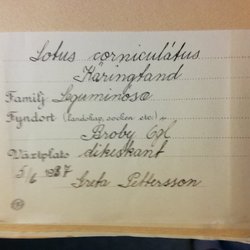 Lotus corniculátus
Käringtand
Familj Leguminósæ
Fyndort (landskap, socken etc.)
Broby Ögl
Växtplats dikeskant
5/6 1937
Greta Pettersson